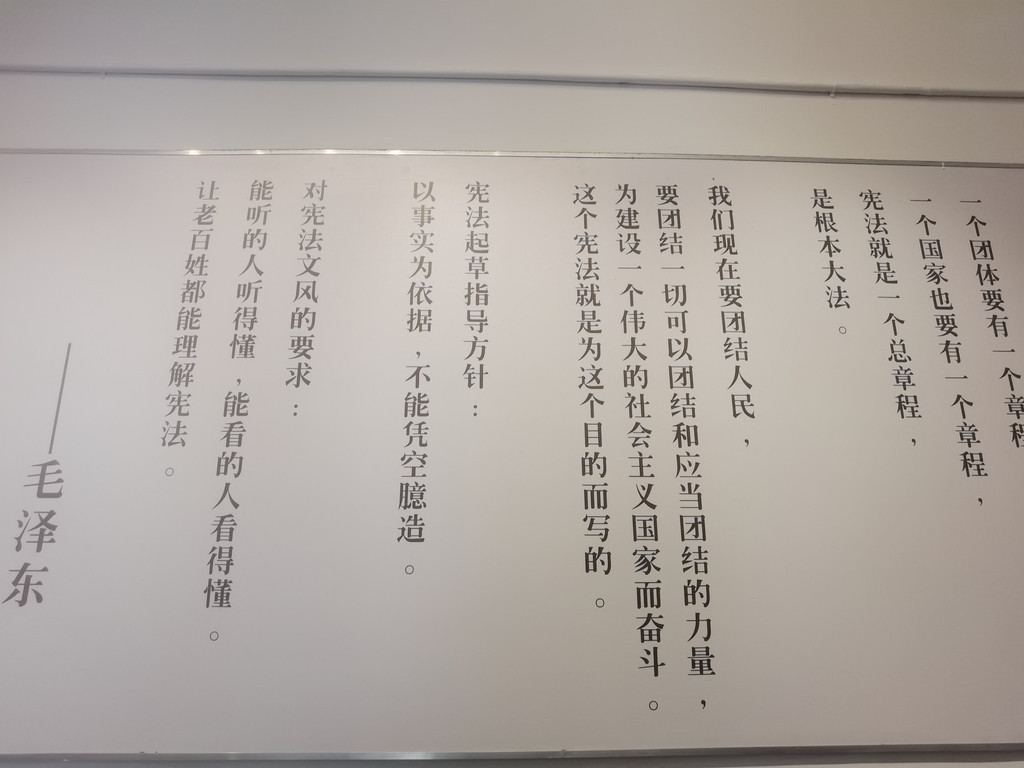 一个团体要有一个章程
一个国家也要有一个章程，
宪法就是一个总章程，
是根本大法。
我们现在要团结人民，
要团结一切可以团结和应当团结的力量，
为建设一个伟大的社会主义国家而奋斗。
这个宪法就是为这个目的而写的。
宪法起草指导方针：
以事实为依据，不能凭空臆造。
对宪法文风的要求：
能听的人听得懂，能看的人看得懂。
让老百姓都能理解宪法。
——毛泽东